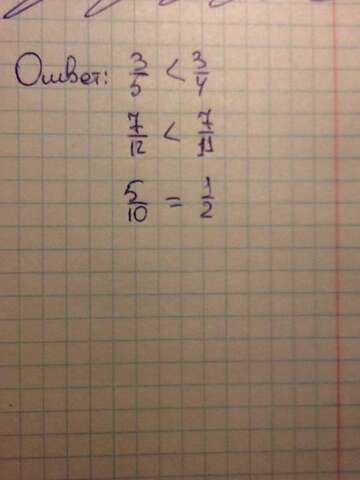 Ответ: 3/5 < 3/4
7/12 < 7/11
5/10 = 1/2